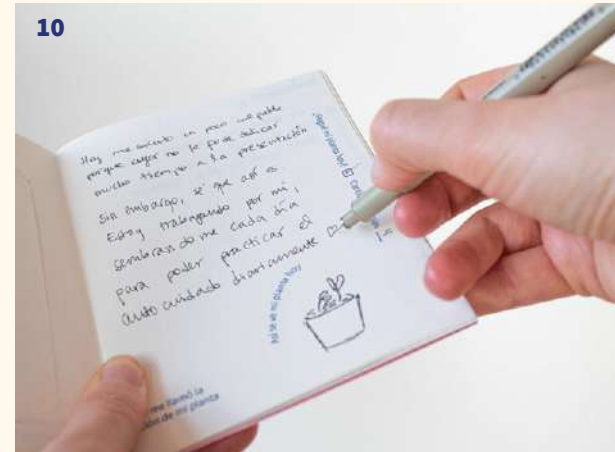 10
Hoy me siento un poco culpable
porque ayer no le pude dedicar
mucho tiempo a la presentación
Sin embargo, sé que
Estoy trabajando por mi,
sembrandome cada día
para poder practicar el
auto cuidado diariamente ♡
¿Regué mi planta hoy?
así se ve mi planta hoy:
me llamó la
ión de mi planta